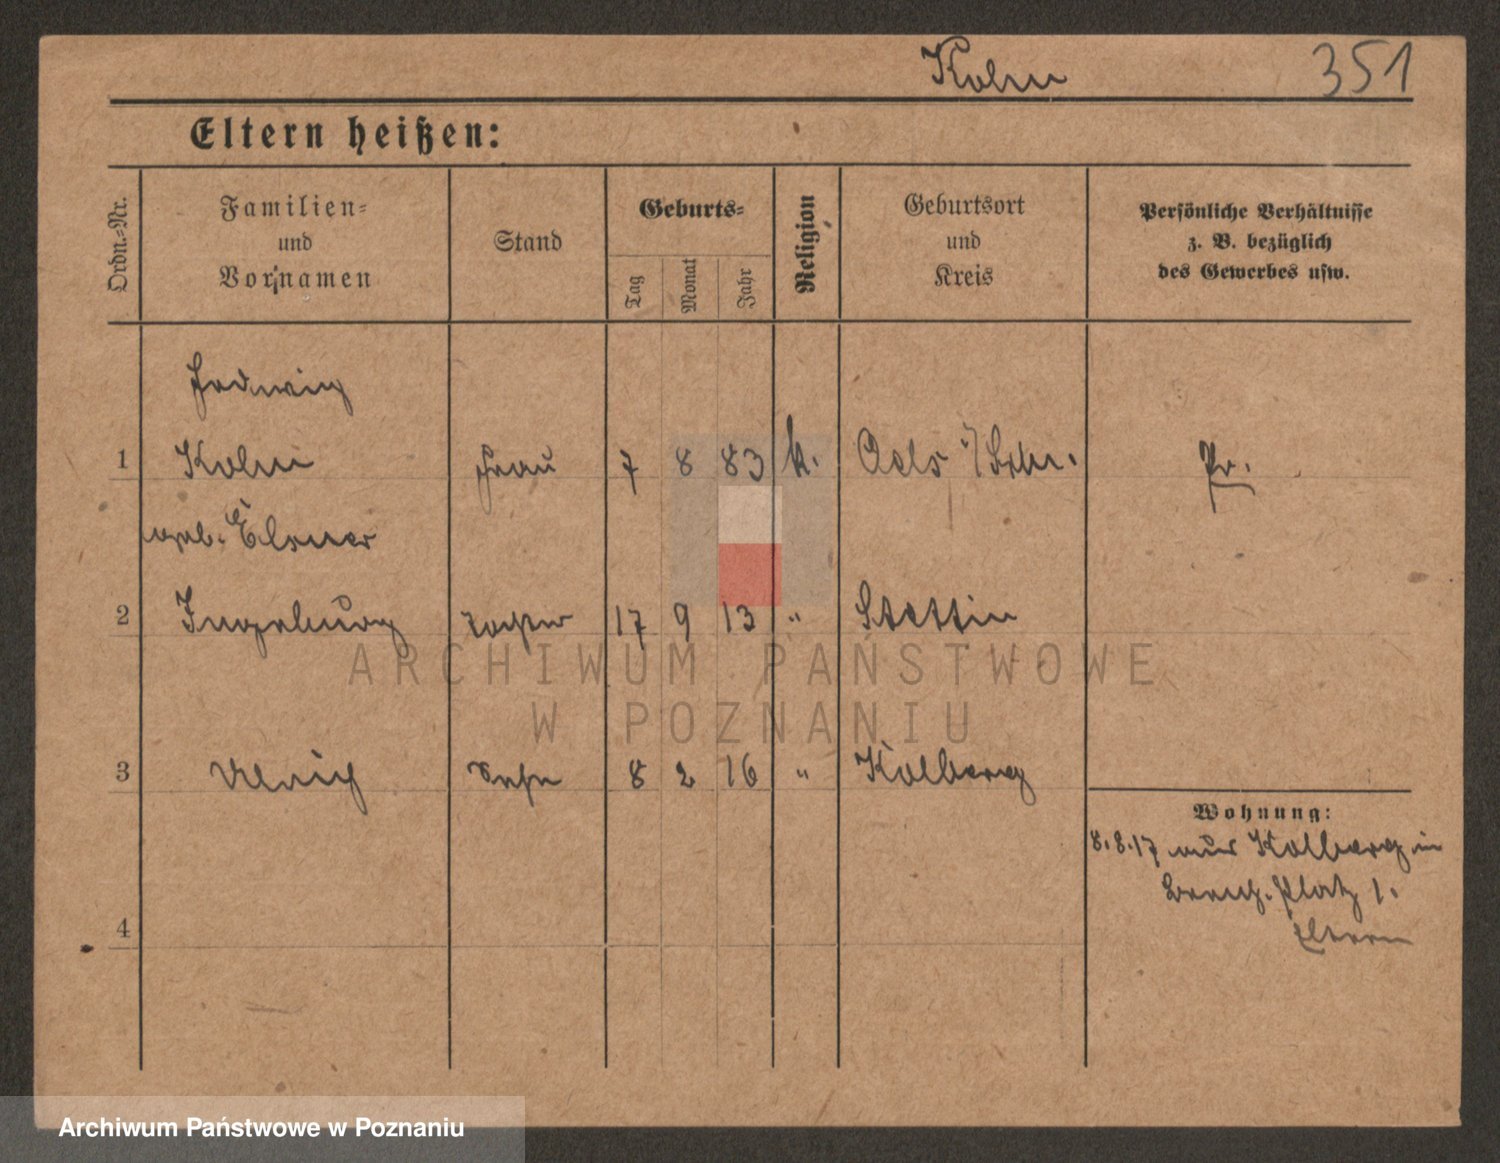 Kolm 351
Eltern heißen:
Ordn.-Nr.
Familien-
und
Vornamen
Stand
Geburts-
Tag
Monat
Jahr
Religion
Geburtsort
und
Kreis
Persönliche Verhältnisse
z. B. bezüglich
des Gewerbes usw.
Hedwig
1 Kolm Frau 7 8 83 k. Oels i/Schl. Pr.
geb. Elsner
2 Ingeburg Tochter 17 9 13 " Stettin
3 Ulrich Sohn 8 2 16 " Kolberg
Wohnung:
8.8.17 aus Kolberg in
Platz 1.
Eltern
4
ARCHIWUM PAŃSTWOWE
W POZNANIU
Archiwum Państwowe w Poznaniu